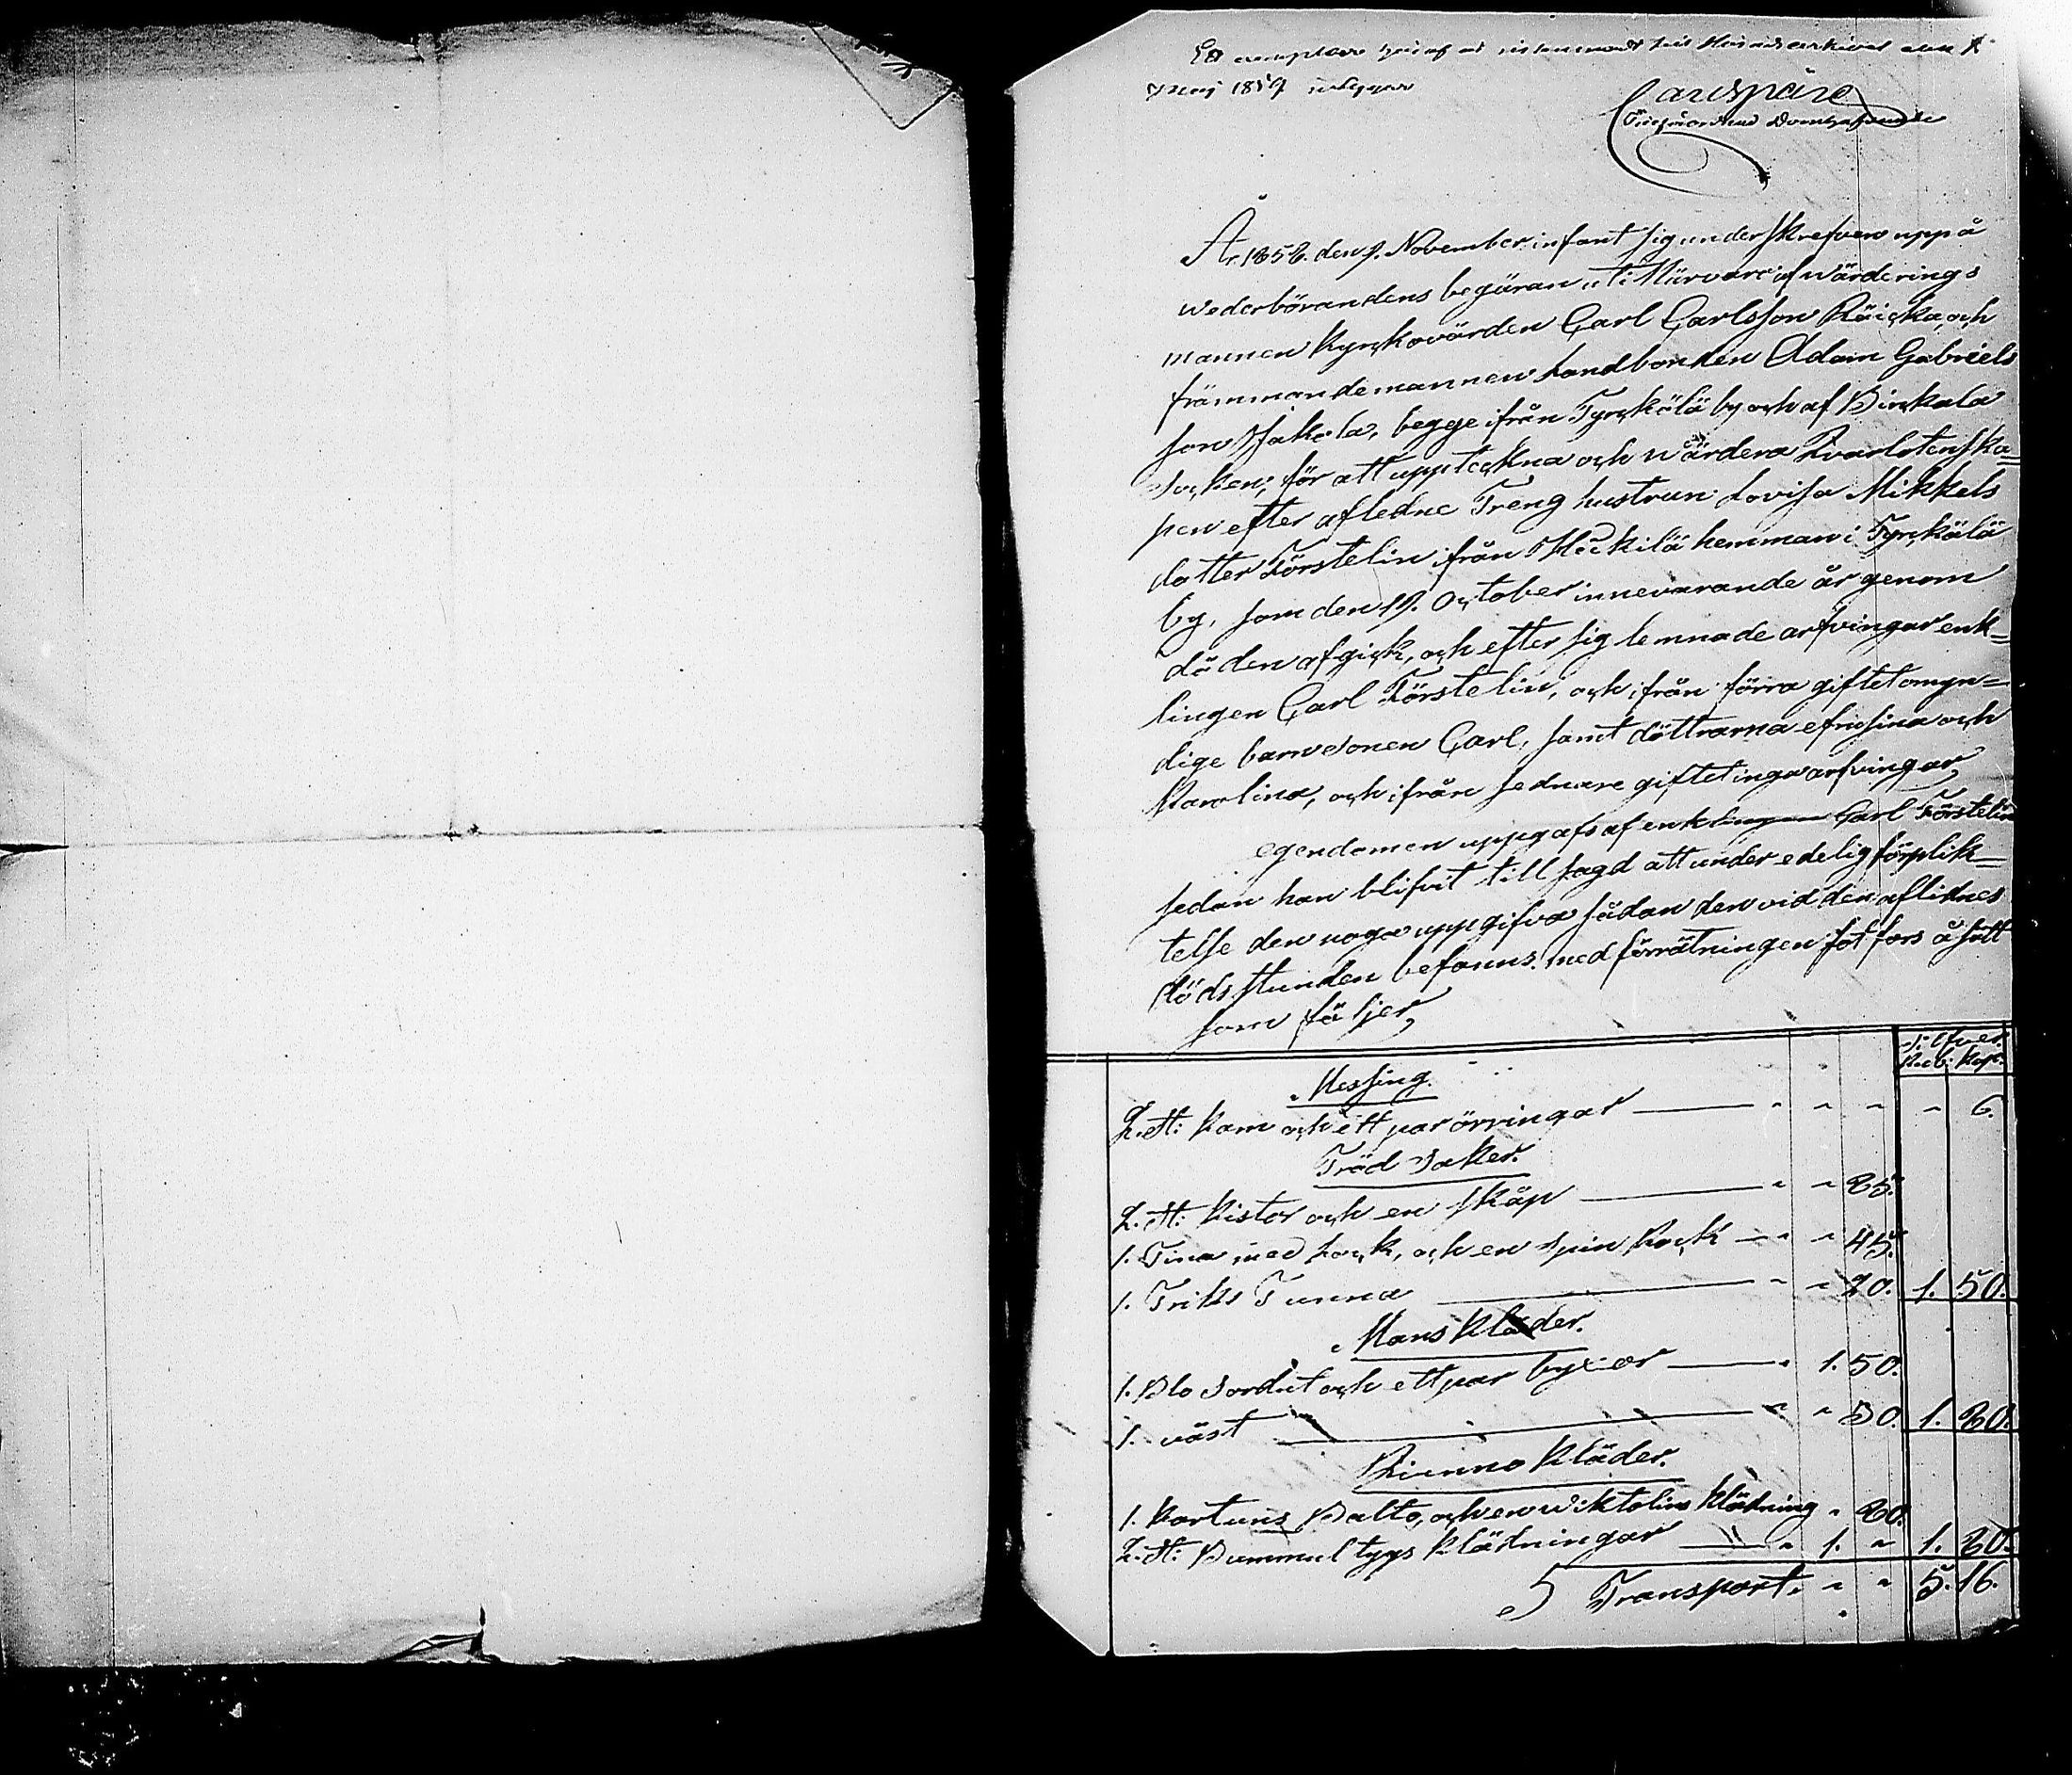 Ett exemplar häraf är inlemnadt till Häradsarkivet den
Maj 1859 intygar
Carl Späre
År 1858. den 9. November infant sig underskrefven uppå
wederbörandens begäran uti närvaro af wärderings
mannen Kyrkovärden Carl Carlsson Räicka, och
främmande mannen Landbonden Adam Gabriels
son Jakola, begge ifrån Tyrkölä by och af Birkala
Socken; för att uppteckna och wärdera Kvarlotenska=
pen efter afledne Dreng hustrun Lovisa Mikkels
dotter Törstelin ifrån Heikilä hemman i Tyrkälä
by, som den 19. October innevarande år genom
döden afgick, och efter sig lemnade arfvingar enk=
lingen Carl Törstelin, och ifrån förra giftet omyn=
dige barn Sonen Carl, samt döttrarna efrosina och
Karolina, och ifrån sednare giftet inga arfvingar,
egendomen uppgafs af enklingen Carl Törstelin
sedan han blifvit till sagd att under edelig förplik=
telse den noga uppgifva sådan den vid den aflidnes
döds stunden befanns. med förrätningen fot fors å sätt
som följer,
Silfver
Rub: Kop:
Messing.
2. st: Kam och ett par örringar — " " " " 6.
Träd Saker.
2. st: Kistor och en skåp — " " 85.
1. Tina med Lock, och en spin Rock — " " 45.
1. Triks Tunna — " " 20. 1. 50.
Mans Kläder.
1. Blo Sordut och ett par byxor — " 1. 50.
1. väst — " " 30. 1. 80.
Kvinno Kläder.
1. Kartuns Palto, och en wiktolins Klädning " 80.
2. st: Bummul tygs Klädningar — " 1. " 1. 80.
Transport. " " 5. 16.